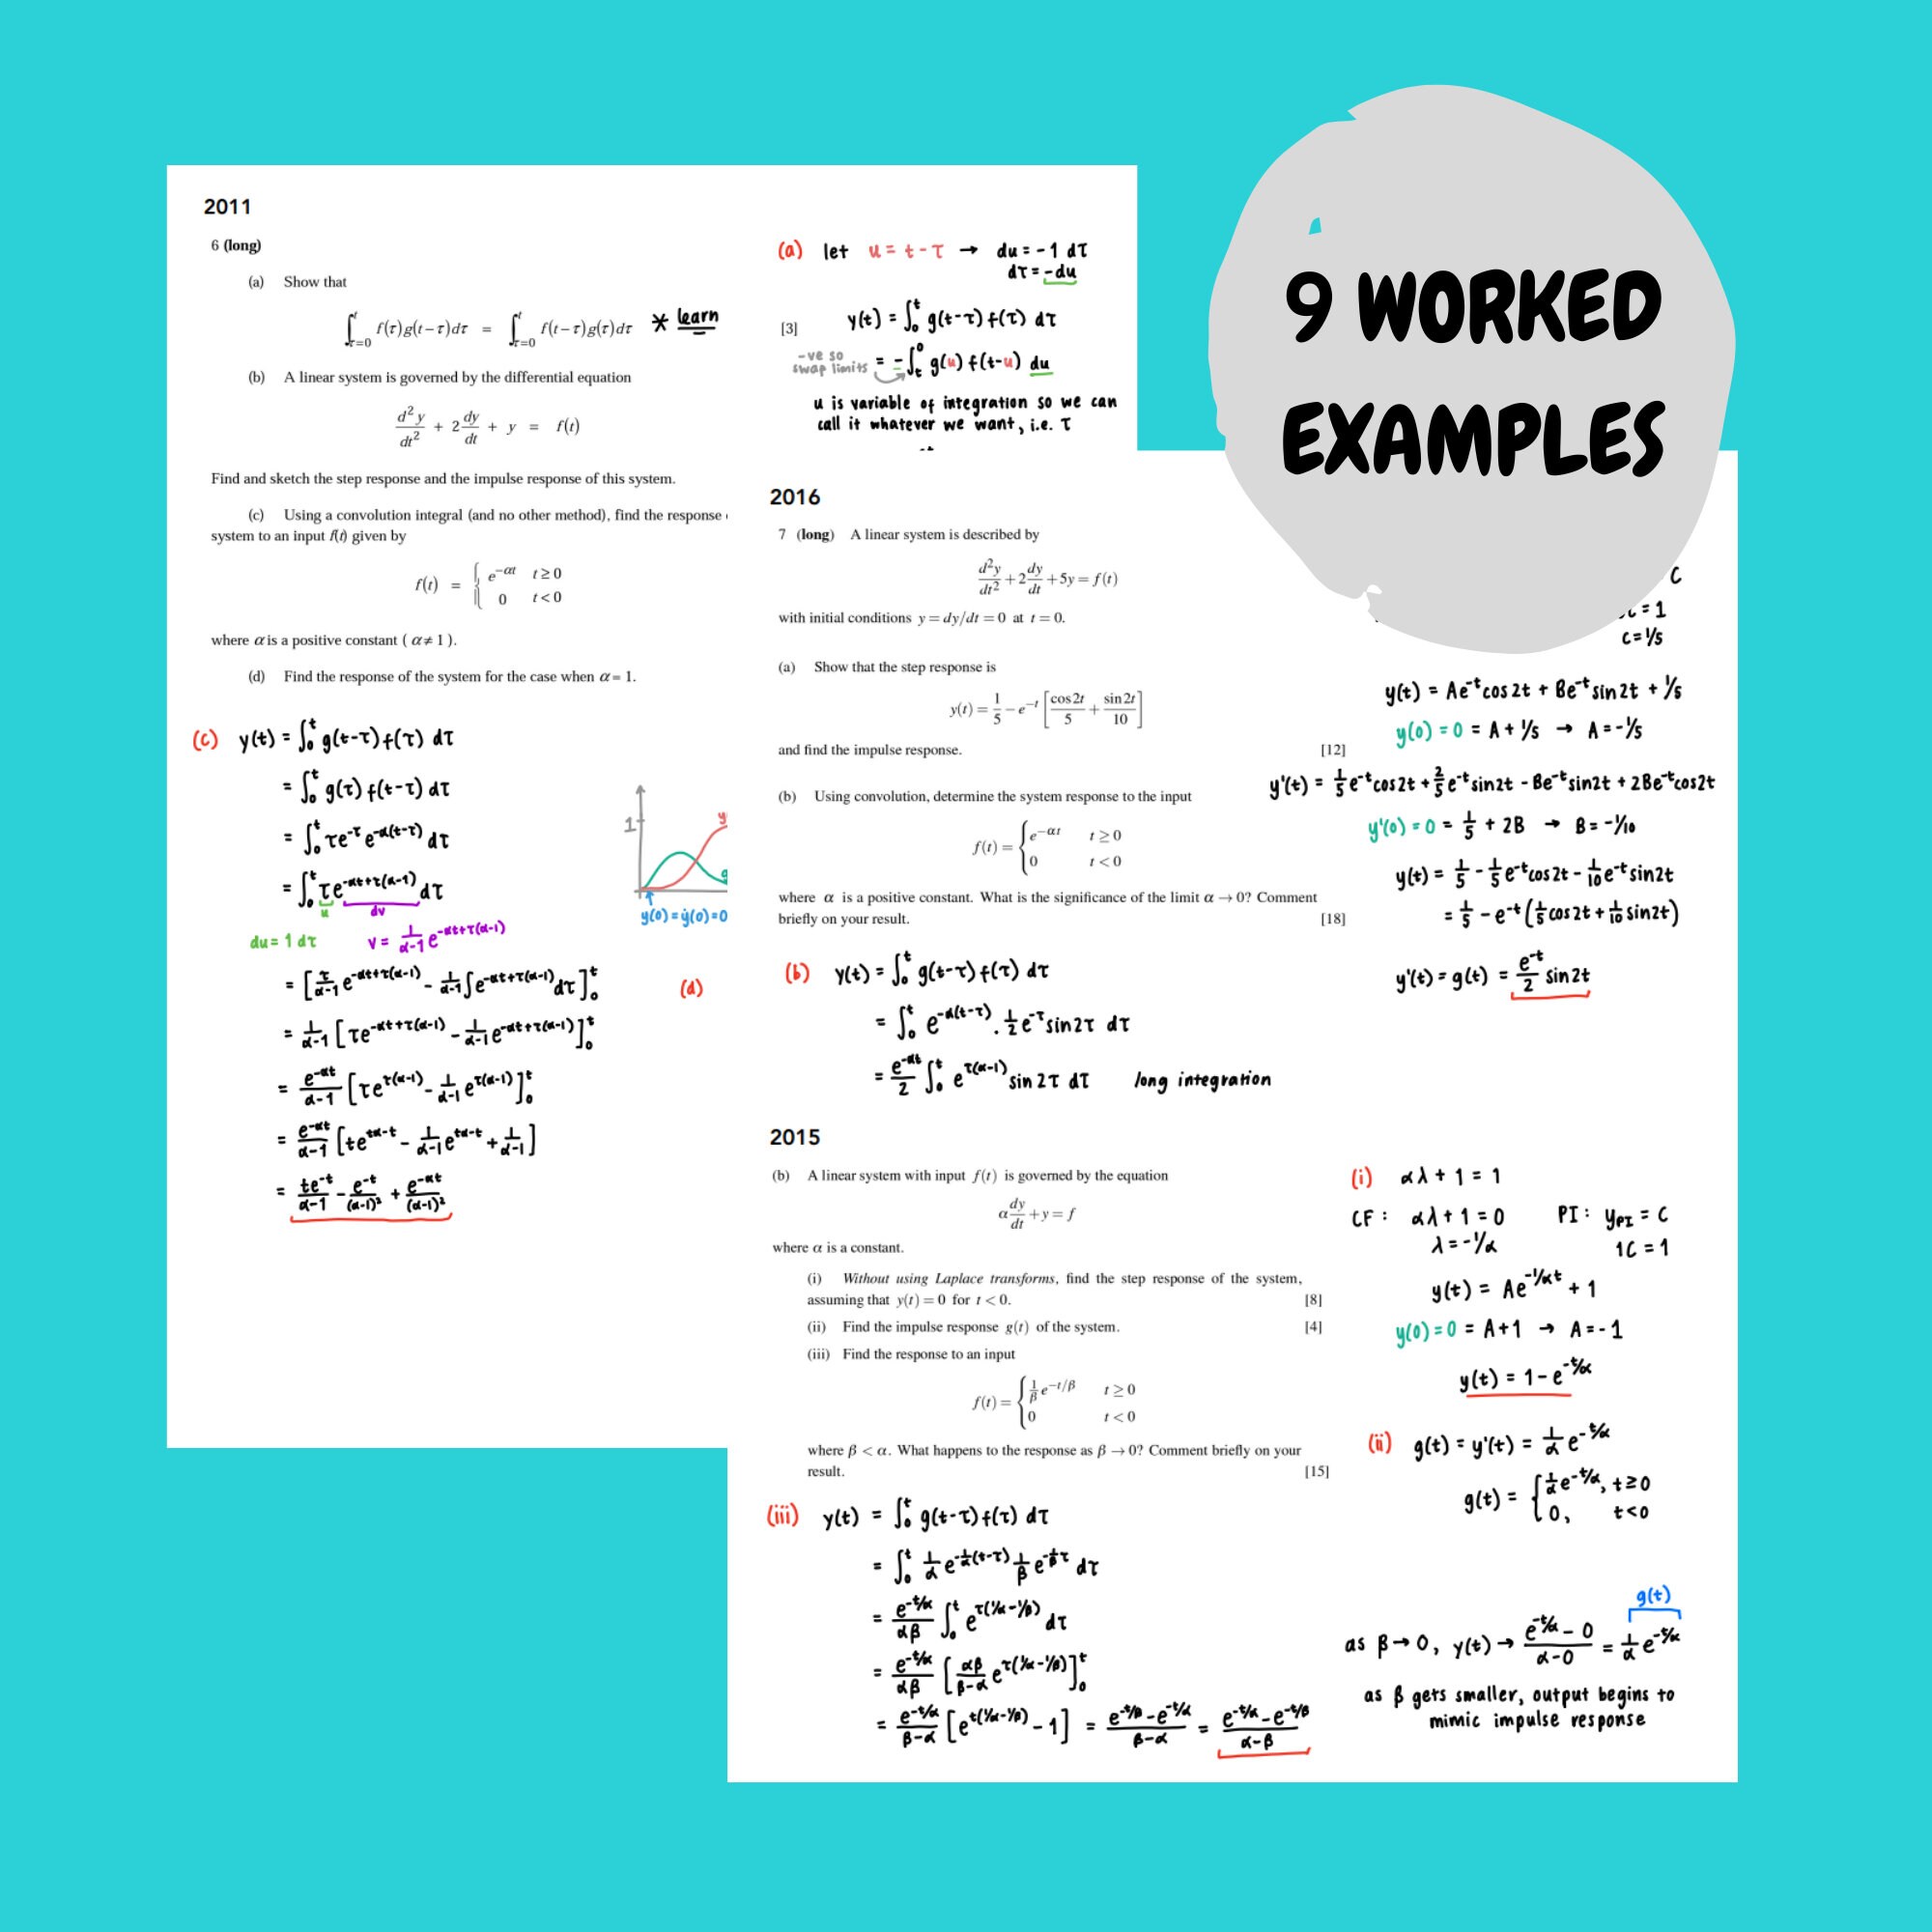 9 WORKED
EXAMPLES
2011
6 (long)
(a) Show that
∫_{τ=0}^{t} f(τ)g(t−τ)dτ = ∫_{τ=0}^{t} f(t−τ)g(τ)dτ * learn
[3]
(b) A linear system is governed by the differential equation
d²y/dt² + 2 dy/dt + y = f(t)
Find and sketch the step response and the impulse response of this system.
(c) Using a convolution integral (and no other method), find the response
system to an input f(t) given by
f(t) = { e^{−αt} t ≥ 0
0 t < 0
where α is a positive constant ( α ≠ 1 ).
(d) Find the response of the system for the case when α = 1.
(a) let u = t - τ → du = -1 dτ
dτ = -du
y(t) = ∫₀ᵗ g(t-τ) f(τ) dτ
-ve so
swap limits
= -∫ₜ⁰ g(u) f(t-u) du
u is variable of integration so we can
call it whatever we want, i.e. τ
(c) y(t) = ∫₀ᵗ g(t-τ) f(τ) dτ
= ∫₀ᵗ g(τ) f(t-τ) dτ
= ∫₀ᵗ τe^{-τ} e^{-α(t-τ)} dτ
= ∫₀ᵗ τe^{-αt+τ(α-1)} dτ
u dv
du = 1 dτ v = 1/(α-1) e^{-αt+τ(α-1)}
= [τ/(α-1) e^{-αt+τ(α-1)} - 1/(α-1) ∫e^{-αt+τ(α-1)} dτ]₀ᵗ
= 1/(α-1) [τe^{-αt+τ(α-1)} - 1/(α-1) e^{-αt+τ(α-1)}]₀ᵗ
= e^{-αt}/(α-1) [τe^{τ(α-1)} - 1/(α-1) e^{τ(α-1)}]₀ᵗ
= e^{-αt}/(α-1) [te^{tα-t} - 1/(α-1) e^{tα-t} + 1/(α-1)]
= te^{-t}/(α-1) - e^{-t}/(α-1)² + e^{-αt}/(α-1)²
1
y
g
y(0) = ẏ(0) = 0
(d)
2016
7 (long) A linear system is described by
d²y/dt² + 2 dy/dt + 5y = f(t)
with initial conditions y = dy/dt = 0 at t = 0.
(a) Show that the step response is
y(t) = 1/5 − e^{−t} [cos 2t/5 + sin 2t/10]
and find the impulse response. [12]
(b) Using convolution, determine the system response to the input
f(t) = { e^{−αt} t ≥ 0
0 t < 0
where α is a positive constant. What is the significance of the limit α → 0? Comment
briefly on your result. [18]
C
= 1
C = 1/5
y(t) = Ae^{-t} cos 2t + Be^{-t} sin 2t + 1/5
y(0) = 0 = A + 1/5 → A = -1/5
y'(t) = 1/5 e^{-t} cos 2t + 2/5 e^{-t} sin 2t - Be^{-t} sin 2t + 2Be^{-t} cos 2t
y'(0) = 0 = 1/5 + 2B → B = -1/10
y(t) = 1/5 - 1/5 e^{-t} cos 2t - 1/10 e^{-t} sin 2t
= 1/5 - e^{-t} (1/5 cos 2t + 1/10 sin 2t)
y'(t) = g(t) = e^{-t}/2 sin 2t
(b) y(t) = ∫₀ᵗ g(t-τ) f(τ) dτ
= ∫₀ᵗ e^{-α(t-τ)} . 1/2 e^{-τ} sin 2τ dτ
= e^{-αt}/2 ∫₀ᵗ e^{τ(α-1)} sin 2τ dτ long integration
2015
(b) A linear system with input f(t) is governed by the equation
α dy/dt + y = f
where α is a constant.
(i) Without using Laplace transforms, find the step response of the system,
assuming that y(t) = 0 for t < 0. [8]
(ii) Find the impulse response g(t) of the system. [4]
(iii) Find the response to an input
f(t) = { 1/β e^{−t/β} t ≥ 0
0 t < 0
where β < α. What happens to the response as β → 0? Comment briefly on your
result. [15]
(i) αλ + 1 = 1
CF: αλ + 1 = 0 PI: y_{PI} = C
λ = -1/α 1C = 1
y(t) = Ae^{-1/αt} + 1
y(0) = 0 = A + 1 → A = -1
y(t) = 1 - e^{-t/α}
(ii) g(t) = y'(t) = 1/α e^{-t/α}
g(t) = { 1/α e^{-t/α}, t ≥ 0
0, t < 0
(iii) y(t) = ∫₀ᵗ g(t-τ) f(τ) dτ
= ∫₀ᵗ 1/α e^{-1/α(t-τ)} 1/β e^{-1/β τ} dτ
= e^{-t/α}/αβ ∫₀ᵗ e^{τ(1/α-1/β)} dτ
= e^{-t/α}/αβ [αβ/(β-α) e^{τ(1/α-1/β)}]₀ᵗ
= e^{-t/α}/(β-α) [e^{t(1/α-1/β)} - 1] = (e^{-t/β} - e^{-t/α})/(β-α) = (e^{-t/α} - e^{-t/β})/(α-β)
g(t)
as β → 0, y(t) → (e^{-t/α} - 0)/(α-0) = 1/α e^{-t/α}
as β gets smaller, output begins to
mimic impulse response